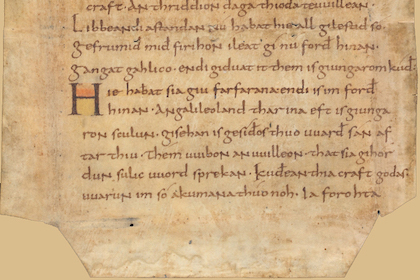 craft · An thriddion daga thioda teuuillean ·
Libbeandi astandan Nu habat hie all gilestid so ·
gefrumid mid firihon ileat gi nu forđ hinan ·
gangat gahlico · endi giduat it them is giungaron kuđ ·
Hie habat sia giu farfarana endi is im forđ
hinan · An galileoland thar ina eft is giunga
ron sculun · gisehan is gesiđos thuo uuarđ san af
tar thiu · them uuibon an uuilleon · that sia gihor
dun sulic uuord sprekan · kuđean thia craft godas ·
uuarun im so akumana thuo noh · Ia forohta